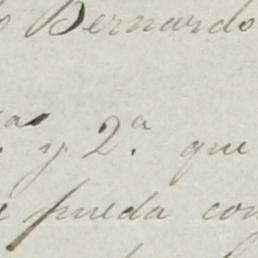 Bernardo
y 2.ª que
pueda con